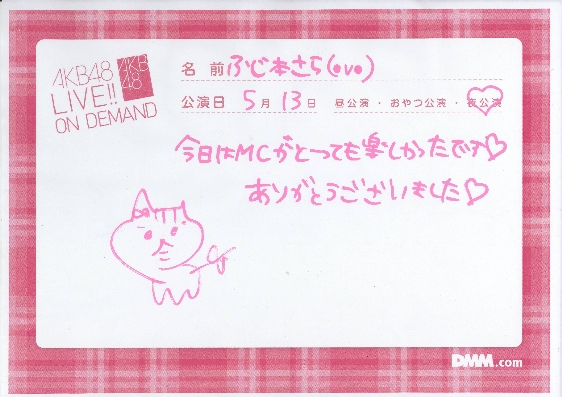 AKB48
LIVE!!
ON DEMAND
AKB
48
名 前 ふじ本さら(•v•)
公演日 5月 13日 昼公演・おやつ公演・夜公演
今日はMCがとっても楽しかったです♡
ありがとうございました♡
DMM.com